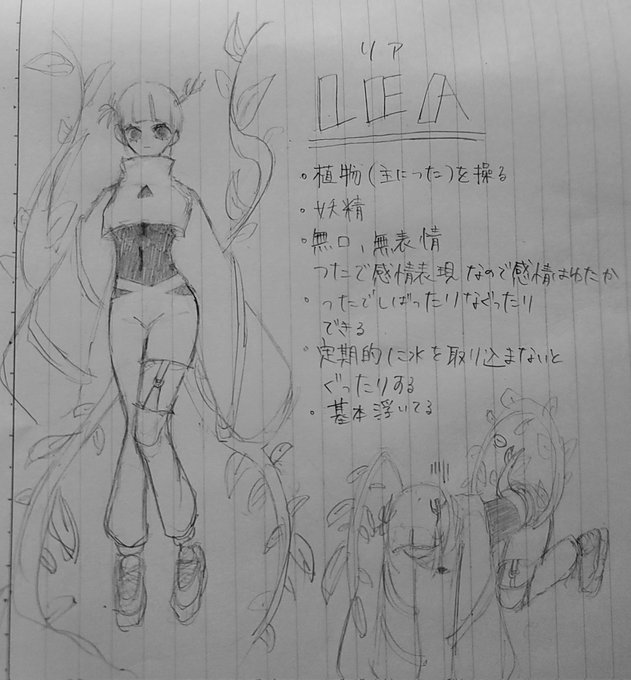 リア
LEA
・植物(主につた)を操る
・妖精
・無口、無表情
つたで感情表現なので感情はゆたか
・つたでしばったりなぐったり
できる
・定期的に水を取り込まないと
ぐったりする
・基本浮いてる